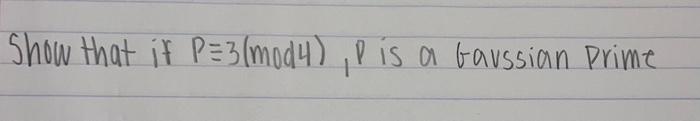 Show that if P≡3(mod4), P is a Gaussian Prime